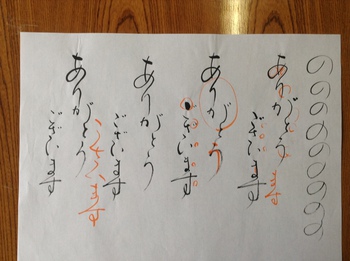 のののののののの
ありがとう
ございます
ありがとう
ございます
ありがとう
ございます
ありがとう
ございます